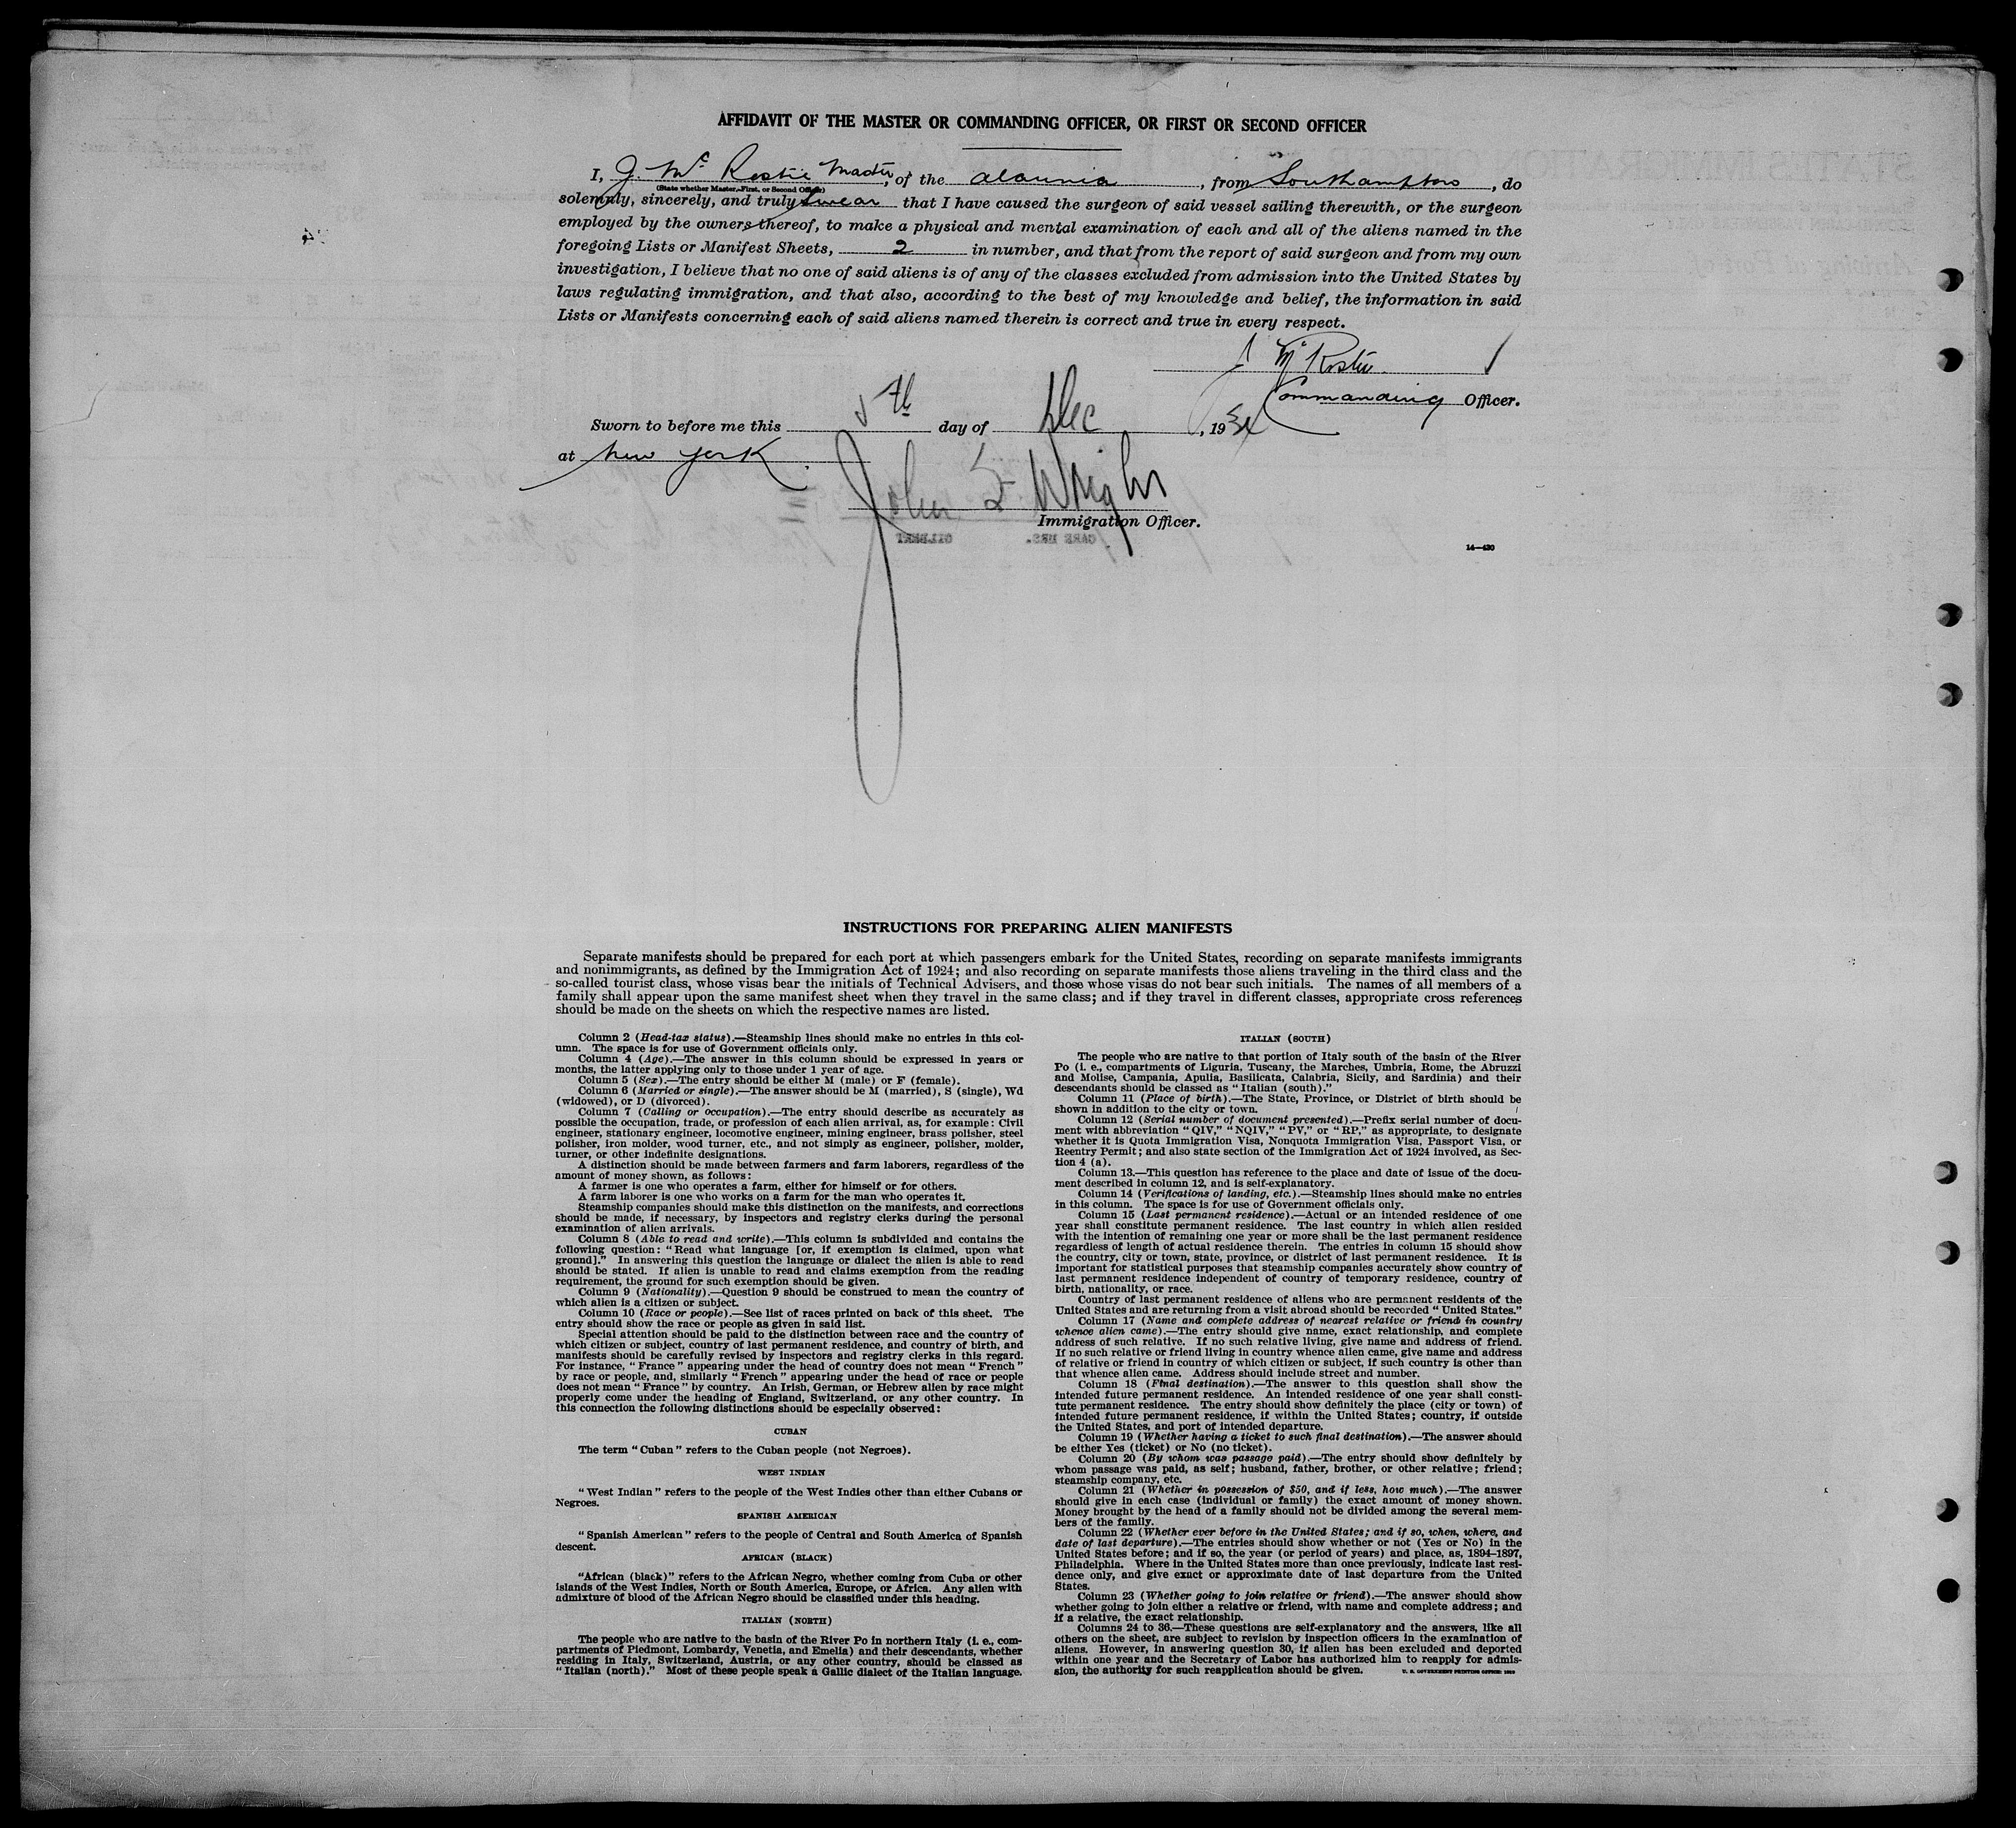 AFFIDAVIT OF THE MASTER OR COMMANDING OFFICER, OR FIRST OR SECOND OFFICER
I, J. Mc Rostie Master, of the Alaunia, from Southampton, do
(State whether Master, First, or Second Officer)
solemnly, sincerely, and truly swear that I have caused the surgeon of said vessel sailing therewith, or the surgeon
employed by the owners thereof, to make a physical and mental examination of each and all of the aliens named in the
foregoing Lists or Manifest Sheets, 2 in number, and that from the report of said surgeon and from my own
investigation, I believe that no one of said aliens is of any of the classes excluded from admission into the United States by
laws regulating immigration, and that also, according to the best of my knowledge and belief, the information in said
Lists or Manifests concerning each of said aliens named therein is correct and true in every respect.
J McRostie
Commanding Officer.
Sworn to before me this 5th day of Dec, 19
at New York
John Wright
Immigration Officer.
14—430
INSTRUCTIONS FOR PREPARING ALIEN MANIFESTS
Separate manifests should be prepared for each port at which passengers embark for the United States, recording on separate manifests immigrants
and nonimmigrants, as defined by the Immigration Act of 1924; and also recording on separate manifests those aliens traveling in the third class and the
so-called tourist class, whose visas bear the initials of Technical Advisers, and those whose visas do not bear such initials. The names of all members of a
family shall appear upon the same manifest sheet when they travel in the same class; and if they travel in different classes, appropriate cross references
should be made on the sheets on which the respective names are listed.
Column 2 (Head-tax status).—Steamship lines should make no entries in this col-
umn. The space is for use of Government officials only.
Column 4 (Age).—The answer in this column should be expressed in years or
months, the latter applying only to those under 1 year of age.
Column 5 (Sex).—The entry should be either M (male) or F (female).
Column 6 (Married or single).—The answer should be M (married), S (single), Wd
(widowed), or D (divorced).
Column 7 (Calling or occupation).—The entry should describe as accurately as
possible the occupation, trade, or profession of each alien arrival, as, for example: Civil
engineer, stationary engineer, locomotive engineer, mining engineer, brass polisher, steel
polisher, iron molder, wood turner, etc., and not simply as engineer, polisher, molder,
turner, or other indefinite designations.
A distinction should be made between farmers and farm laborers, regardless of the
amount of money shown, as follows:
A farmer is one who operates a farm, either for himself or for others.
A farm laborer is one who works on a farm for the man who operates it.
Steamship companies should make this distinction on the manifests, and corrections
should be made, if necessary, by inspectors and registry clerks during the personal
examination of alien arrivals.
Column 8 (Able to read and write).—This column is subdivided and contains the
following question: "Read what language [or, if exemption is claimed, upon what
ground]." In answering this question the language or dialect the alien is able to read
should be stated. If alien is unable to read and claims exemption from the reading
requirement, the ground for such exemption should be given.
Column 9 (Nationality).—Question 9 should be construed to mean the country of
which alien is a citizen or subject.
Column 10 (Race or people).—See list of races printed on back of this sheet. The
entry should show the race or people as given in said list.
Special attention should be paid to the distinction between race and the country of
which citizen or subject, country of last permanent residence, and country of birth, and
manifests should be carefully revised by inspectors and registry clerks in this regard.
For instance, "France" appearing under the head of country does not mean "French"
by race or people, and, similarly "French" appearing under the head of race or people
does not mean "France" by country. An Irish, German, or Hebrew alien by race might
properly come under the heading of England, Switzerland, or any other country. In
this connection the following distinctions should be especially observed:
CUBAN
The term "Cuban" refers to the Cuban people (not Negroes).
WEST INDIAN
"West Indian" refers to the people of the West Indies other than either Cubans or
Negroes.
SPANISH AMERICAN
"Spanish American" refers to the people of Central and South America of Spanish
descent.
AFRICAN (BLACK)
"African (black)" refers to the African Negro, whether coming from Cuba or other
islands of the West Indies, North or South America, Europe, or Africa. Any alien with
admixture of blood of the African Negro should be classified under this heading.
ITALIAN (NORTH)
The people who are native to the basin of the River Po in northern Italy (i. e., com-
partments of Piedmont, Lombardy, Venetia, and Emelia) and their descendants, whether
residing in Italy, Switzerland, Austria, or any other country, should be classed as
"Italian (north)." Most of these people speak a Gallic dialect of the Italian language.
ITALIAN (SOUTH)
The people who are native to that portion of Italy south of the basin of the River
Po (i. e., compartments of Liguria, Tuscany, the Marches, Umbria, Rome, the Abruzzi
and Molise, Campania, Apulia, Basilicata, Calabria, Sicily, and Sardinia) and their
descendants should be classed as "Italian (south)."
Column 11 (Place of birth).—The State, Province, or District of birth should be
shown in addition to the city or town.
Column 12 (Serial number of document presented).—Prefix serial number of docu-
ment with abbreviation "QIV," "NQIV," "PV," or "RP," as appropriate, to designate
whether it is Quota Immigration Visa, Nonquota Immigration Visa, Passport Visa, or
Reentry Permit; and also state section of the Immigration Act of 1924 involved, as Sec-
tion 4 (a).
Column 13.—This question has reference to the place and date of issue of the docu-
ment described in column 12, and is self-explanatory.
Column 14 (Verifications of landing, etc.).—Steamship lines should make no entries
in this column. The space is for use of Government officials only.
Column 15 (Last permanent residence).—Actual or an intended residence of one
year shall constitute permanent residence. The last country in which alien resided
with the intention of remaining one year or more shall be the last permanent residence
regardless of length of actual residence therein. The entries in column 15 should show
the country, city or town, state, province, or district of last permanent residence. It is
important for statistical purposes that steamship companies accurately show country of
last permanent residence independent of country of temporary residence, country of
birth, nationality, or race.
Country of last permanent residence of aliens who are permanent residents of the
United States and are returning from a visit abroad should be recorded "United States."
Column 17 (Name and complete address of nearest relative or friend in country
whence alien came).—The entry should give name, exact relationship, and complete
address of such relative. If no such relative living, give name and address of friend.
If no such relative or friend living in country whence alien came, give name and address
of relative or friend in country of which citizen or subject, if such country is other than
that whence alien came. Address should include street and number.
Column 18 (Final destination).—The answer to this question shall show the
intended future permanent residence. An intended residence of one year shall consti-
tute permanent residence. The entry should show definitely the place (city or town) of
intended future permanent residence, if within the United States; country, if outside
the United States, and port of intended departure.
Column 19 (Whether having a ticket to such final destination).—The answer should
be either Yes (ticket) or No (no ticket).
Column 20 (By whom was passage paid).—The entry should show definitely by
whom passage was paid, as self; husband, father, brother, or other relative; friend;
steamship company, etc.
Column 21 (Whether in possession of $50, and if less, how much).—The answer
should give in each case (individual or family) the exact amount of money shown.
Money brought by the head of a family should not be divided among the several mem-
bers of the family.
Column 22 (Whether ever before in the United States; and if so, when, where, and
date of last departure).—The entries should show whether or not (Yes or No) in the
United States before; and if so, the year (or period of years) and place, as, 1894–1897,
Philadelphia. Where in the United States more than once previously, indicate last resi-
dence only, and give exact or approximate date of last departure from the United
States.
Column 23 (Whether going to join relative or friend).—The answer should show
whether going to join either a relative or friend, with name and complete address; and
if a relative, the exact relationship.
Columns 24 to 36.—These questions are self-explanatory and the answers, like all
others on the sheet, are subject to revision by inspection officers in the examination of
aliens. However, in answering question 30, if alien has been excluded and deported
within one year and the Secretary of Labor has authorized him to reapply for admis-
sion, the authority for such reapplication should be given.
U. S. GOVERNMENT PRINTING OFFICE